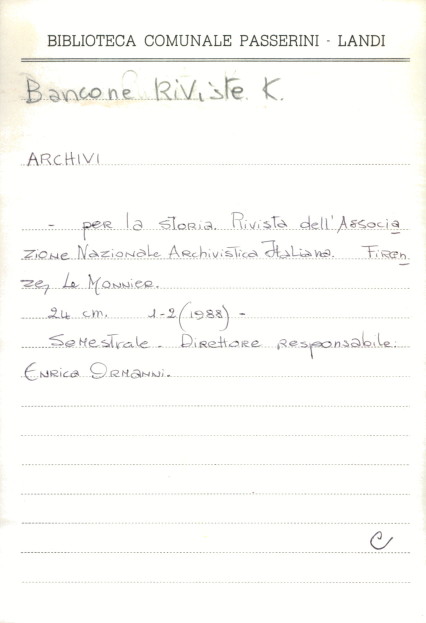 BIBLIOTECA COMUNALE PASSERINI - LANDI
Bancone Riviste K.
ARCHIVI
- per la storia. Rivista dell'Associa
zione Nazionale Archivistica Italiana. Firen
ze, Le Monnier.
24 cm. 1-2 (1988) -
Semestrale. Direttore responsabile:
Enrica Ormanni.
C